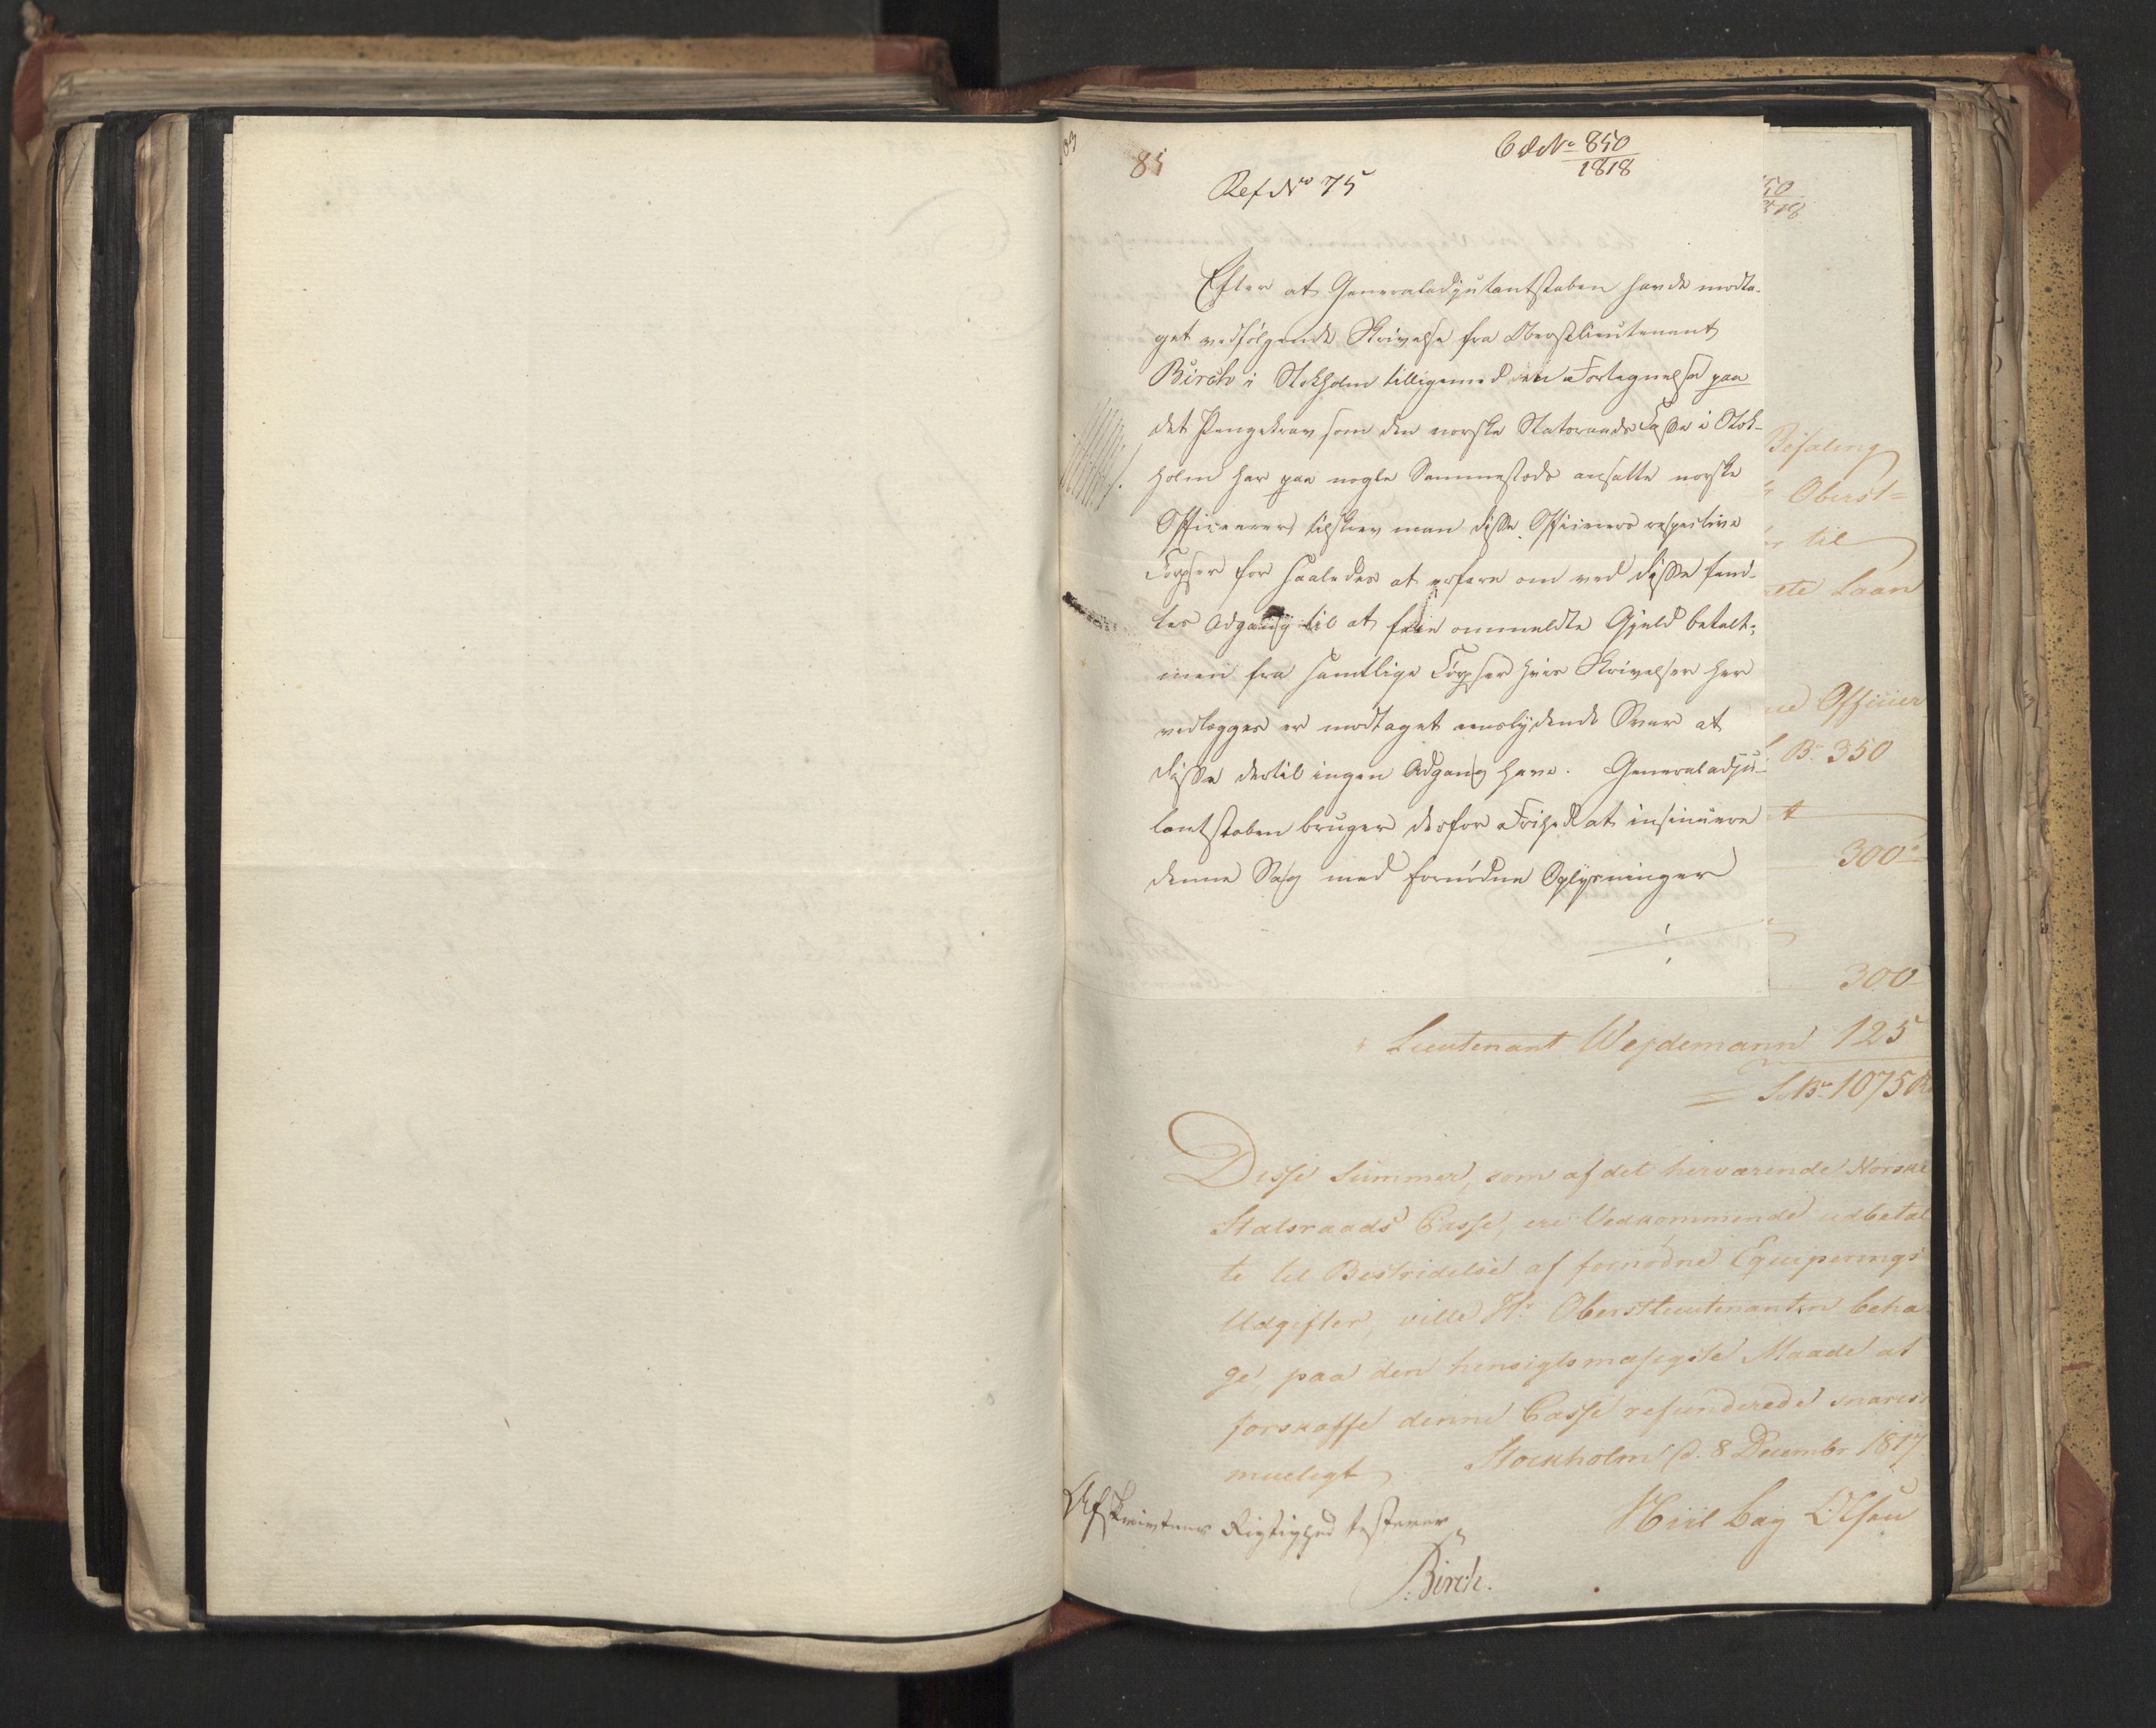 85
Ref No 75
CdNo 850
1818
Efter at Generaladjutantstaben havde modta-
get vedfølgende Skrivelse fra Oberstlieutenant
Birch i Stokholm tilligemed en Fortegnelse paa
det Pengekrav som den norske Statsraads Casse i Stok-
holm har paa nogle Sammesteds ansatte norske
Officerer, tilskrev man disse Officerers respective
Corpser for saaledes at erfare om ved disse fand-
tes Adgang til at faae ommeldte Gjeld betalt;
men fra samtlige Corpser hvis Skrivelser her
vedlægges er modtaget eenslydende Svar at
disse dertil ingen Adgang have. Generaladju-
tantstaben bruger derfor Frihed at insinuere
denne Sag med fornødne Oplysninger
50
818
Befaling
Oberst=
til
Laan
Officier
Bo 350
300
300
Lieutenant Wejdemann 125
= S Bo 1075
Disse Summer, som af det herværende Norske
Statsraads Casse, ere Vedkommende udbetal
te til Bestridelse af fornødne Equiperings
Udgifter, ville Hr Oberstlieutenanten beha
ge, paa den hensigtsmæsigste Maade at
forskaffe denne Casse refunderede snarest
mueligt Stockholm d. 8 Decembr 1817
Afskrivtens Rigtighed testerer
Birch.